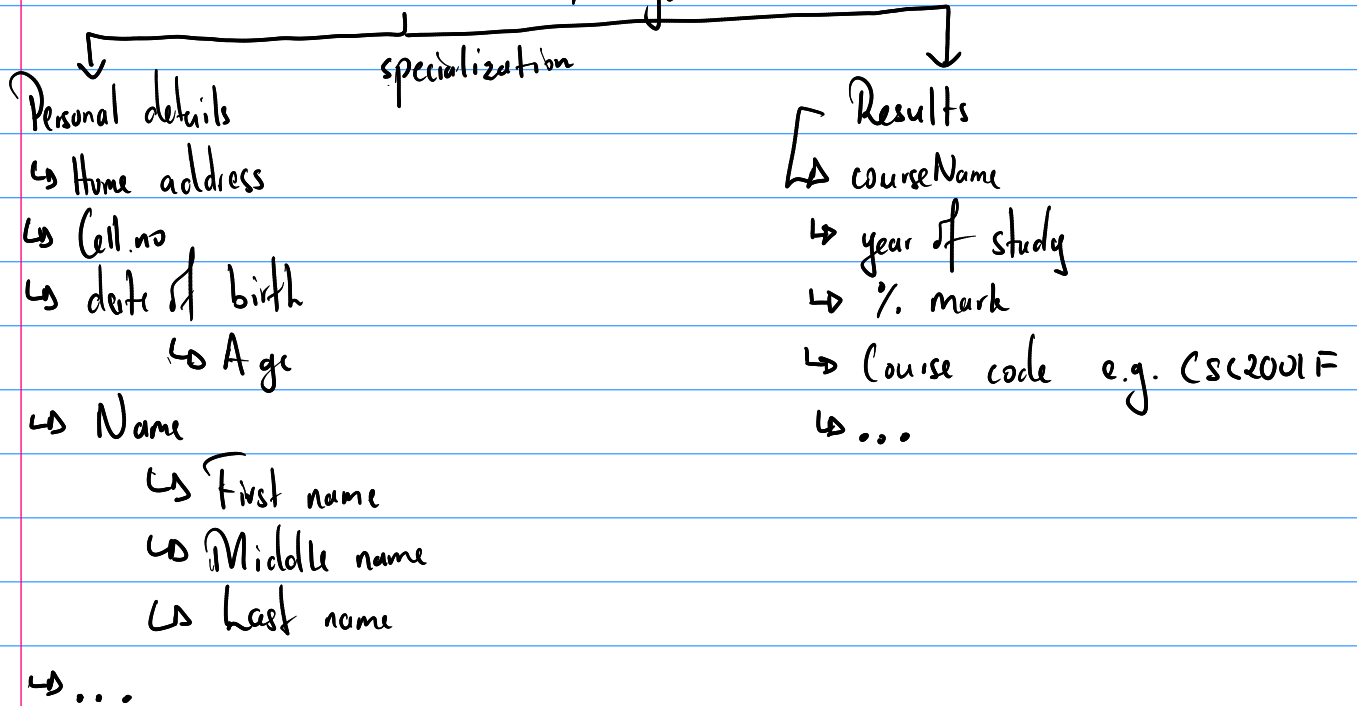 specialization
Personal details
↳ Home address
↳ Cell.no
↳ date of birth
↳ Age
↳ Name
↳ First name
↳ Middle name
↳ Last name
↳ ...
Results
↳ courseName
↳ year of study
↳ % mark
↳ Course code e.g. CSC2001F
↳ ...